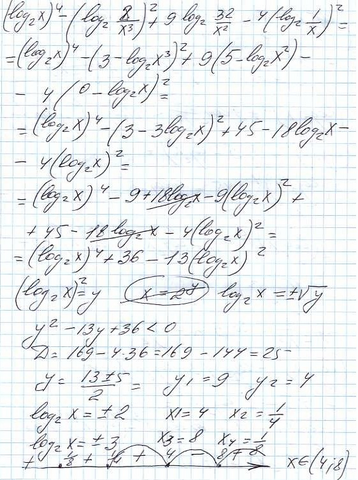 (log₂x)⁴ - (log₂ 8/x³)² + 9 log₂ 32/x² - 4(log₂ 1/x)² =
= (log₂x)⁴ - (3 - log₂x³)² + 9(5 - log₂x²) -
- 4(0 - log₂x)² =
= (log₂x)⁴ - (3 - 3log₂x)² + 45 - 18log₂x -
- 4(log₂x)² =
= (log₂x)⁴ - 9 + 18log₂x - 9(log₂x)² +
+ 45 - 18log₂x - 4(log₂x)² =
= (log₂x)⁴ + 36 - 13(log₂x)²
(log₂x)² = y x = 2^y log₂x = ±√y
y² - 13y + 36 < 0
D = 169 - 4·36 = 169 - 144 = 25
y = (13 ± 5)/2 = y₁ = 9 y₂ = 4
log₂x = ±2 x₁ = 4 x₂ = 1/4
log₂x = ±3 x₃ = 8 x₄ = 1/8
+ 1/8 + 1/4 + 4 - 8 + x∈(4;8)